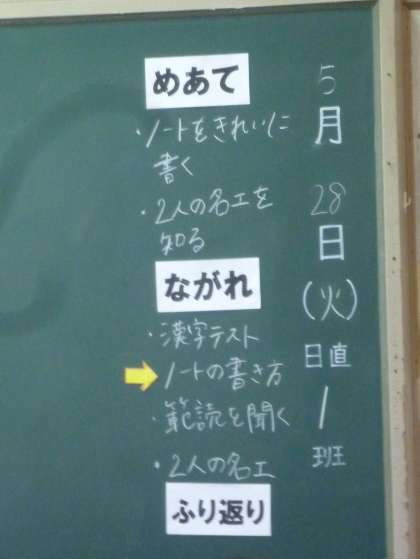 5
月
28
日
(火)
日直
1
班
めあて
・ノートをきれいに
書く
・2人の名工を
知る
ながれ
・漢字テスト
ノートの書き方
・範読を聞く
・2人の名工
ふり返り